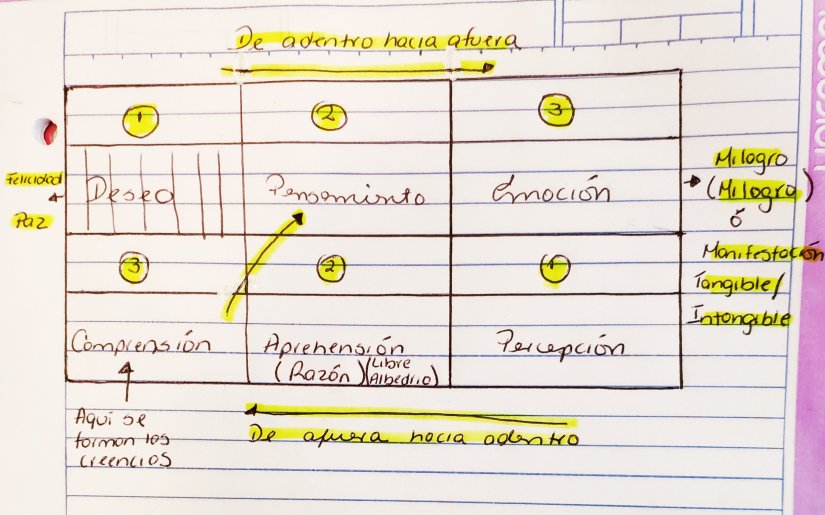 De adentro hacia afuera
1 2 3
Deseo Pensamiento Emoción
Felicidad
Paz
Milagro
(Milagro)
ó
Manifestación
Tangible/
Intangible
3 2 1
Comprensión Aprehensión Percepción
(Razón) (Libre Albedrio)
Aquí se
forman las
creencias
De afuera hacia adentro